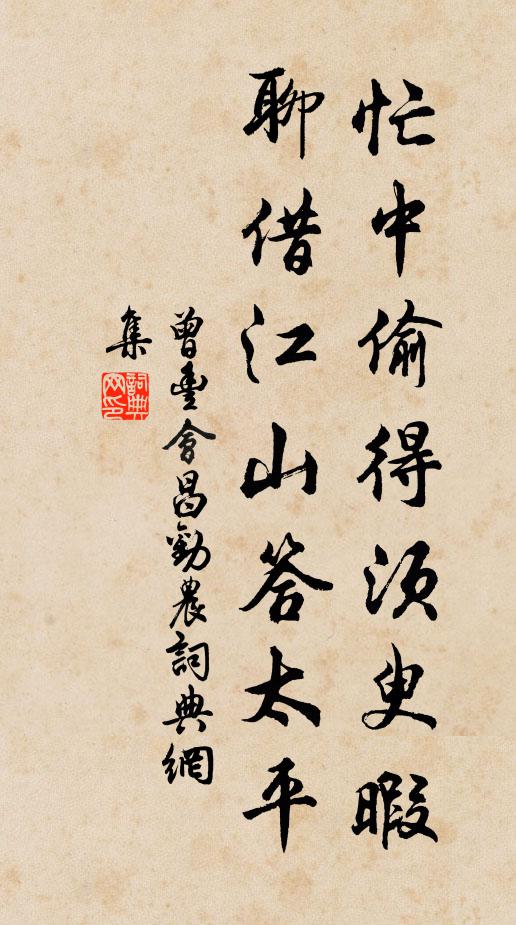 忙中偷得須臾暇
聊借江山答太平
曾豐會昌勸農詞典網
集
詞典
网印